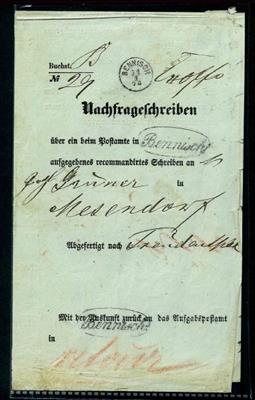 Buchst. B
№ 29
BENNISCH
Nachfrageschreiben
über ein beim Postamte in Bennisch
aufgegebenes recommandirtes Schreiben an
Grüner in
Mesendorf
Abgefertigt nach
Mit der Auskunft zurück an das Aufgabspostamt
Bennisch
in
retour